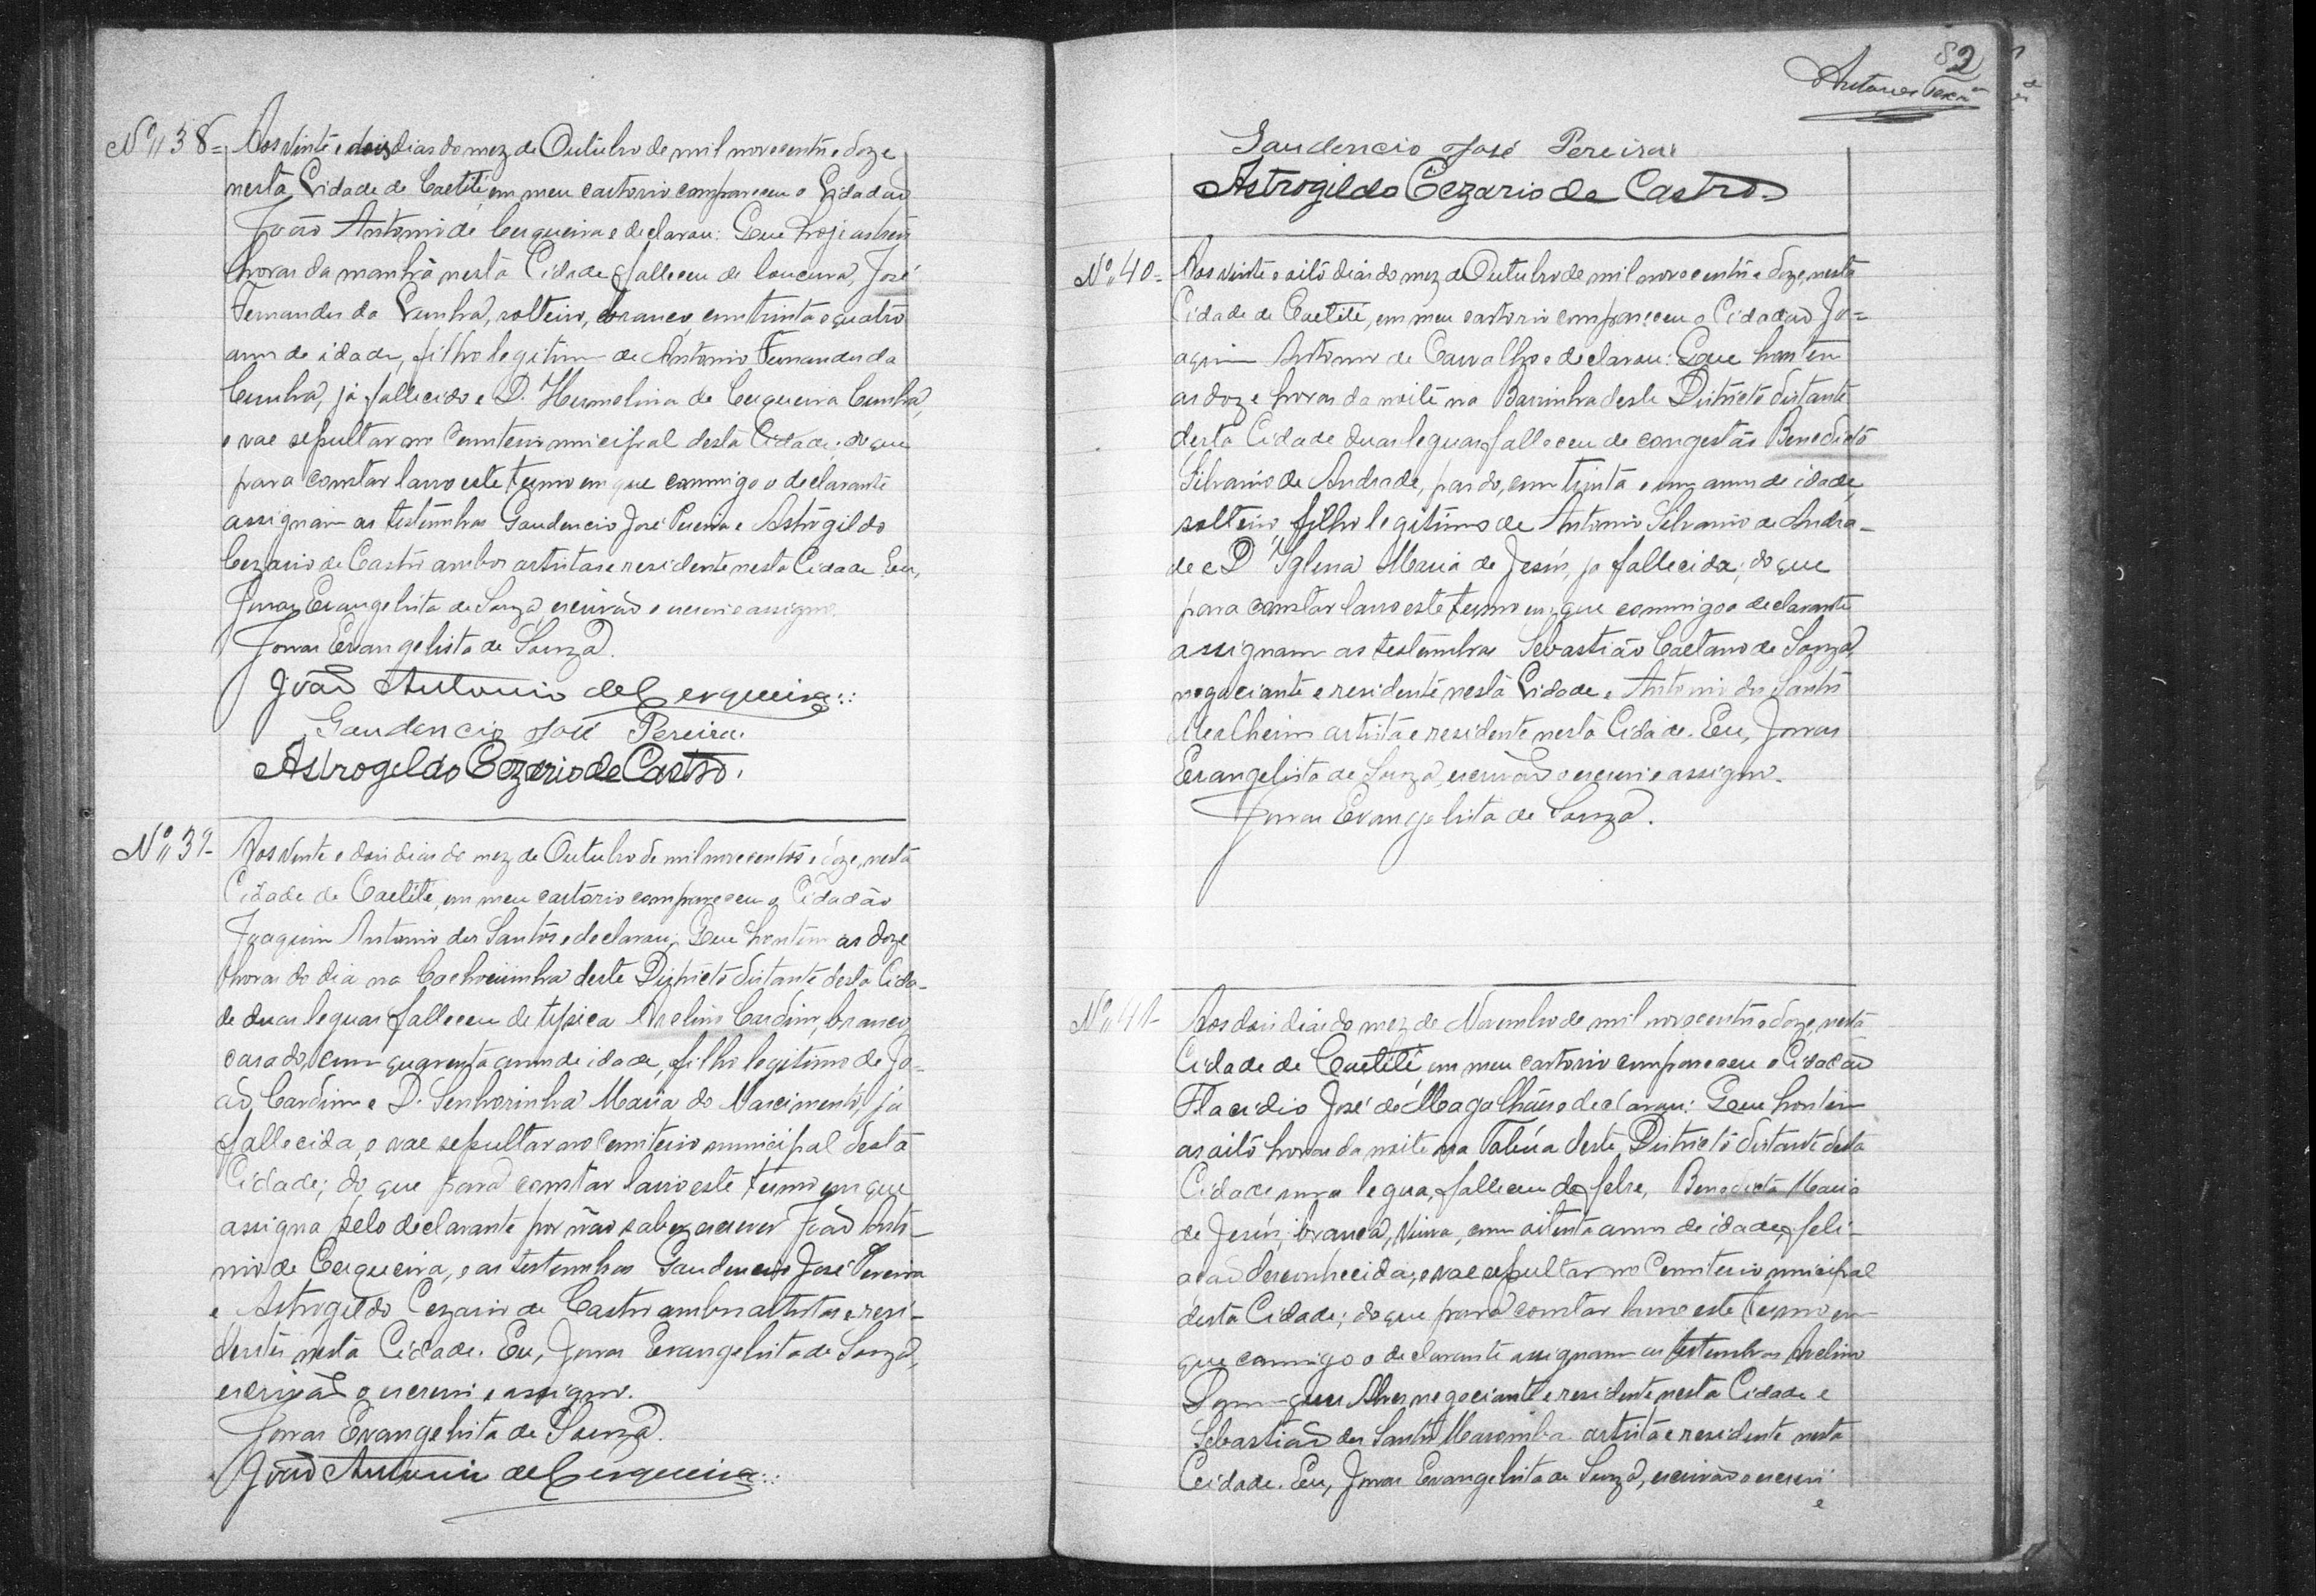 Nº 38 = Aos vinte e dois dias do mez de Outubro de mil novecentos e doze
nesta Cidade de Caetité, em meu cartorio compareceu o Cidadão
João Antonio de Cerqueira e declarou: Que hoje as tres
horas da manhã nesta Cidade falleceu de loucura, José
Fernandes da Cunha, solteiro, branco, com trinta e quatro
annos de idade, filho legitimo de Antonio Fernandes da
Cunha, já fallecido e D. Hermelina de Cerqueira Cunha,
e vae sepultar no Cemiterio municipal desta Cidade; do que
para constar lavro este termo em que commigo o declarante
assignam as testemunhas Gaudencio José Pereira e Astrogildo
Cezario de Castro ambos artistas e residentes nesta Cidade. Eu,
Jonas Evangelista de Souza, escrivão o escrevi e assigno.
Jonas Evangelista de Souza.
João Antonio de Cerqueira
Gaudencio José Pereira.
Astrogeldo Cezario de Castro.
Nº 39 - Aos vinte e dois dias do mez de Outubro de mil novecentos e doze, nesta
Cidade de Caetité, em meu cartorio compareceu o Cidadão
Joaquim Antonio dos Santos e declarou: Que hontem as doze
horas do dia na Cachoeirinha deste Districto distante desta Cida-
de duas leguas falleceu de tysica Avelino Cardim, branco,
casado, com quarenta annos de idade, filho legitimo de Jo-
ão Cardim e D. Senhorinha Maria do Nascimento, já
fallecida, e vae sepultar no Cemiterio municipal desta
Cidade; do que para constar lavro este termo em que
assigna pelo declarante por não saber escrever João Anto-
nio de Cerqueira, e as testemunhas Gaudencio José Pereira
e Astrogildo Cezario de Castro ambos artistas e resi-
dentes nesta Cidade. Eu, Jonas Evangelista de Souza,
escrivão o escrevi e assigno.
Jonas Evangelista de Souza.
João Antonio de Cerqueira
82
Gaudencio José Pereira
Astrogildo Cezario de Castro.
Nº 40 - Aos vinte e oito dias do mez de Outubro de mil novecentos e doze, nesta
Cidade de Caetité, em meu cartorio compareceu o Cidadão Jo=
aquim Antonio de Carvalho e declarou: Que hontem
as doze horas da noite na Barrinha deste Districto distante
desta Cidade duas leguas falleceu de congestão Benedicto
Silvanio de Andrade, pardo, com trinta e um annos de idade,
solteiro, filho legitimo de Antonio Silvanio de Andra-
de e D Iglena Maria de Jesus, já fallecida; do que
para constar lavro este termo em que commigo o declarante
assignam as testemunhas Sebastião Caetano de Souza,
negociante e residente nesta Cidade e Antonio dos Santos
Mealheiro artista e residente nesta Cidade. Eu, Jonas
Evangelista de Souza, escrivão o escrevi e assigno.
Jonas Evangelista de Souza.
Nº 41 - Aos dois dias do mez de Novembro de mil novecentos e doze, nesta
Cidade de Caetité, em meu cartorio compareceu o Cidadão
Placidio José de Magalhães e declarou: Que hontem
as oito horas da noite na deste Districto distante desta
Cidade uma legua, falleceu de febre, Benedicta Maria
de Jesus, branca, viuva, com oitenta annos de idade, fili-
ação desconhecida, e vae sepultar no Cemiterio municipal
desta Cidade; do que para constar lavro este termo em
que commigo o declarante assignam as testemunhas Avelino
Alves negociante e residente nesta Cidade e
Sebastião dos Santos Maromba artista e residente nesta
Cidade. Eu, Jonas Evangelista de Souza, escrivão o escrevi
e